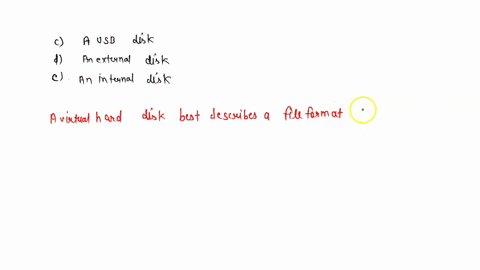 c) A USB disk
d) An external disk
e) An internal disk
A virtual hard disk best describes a file format